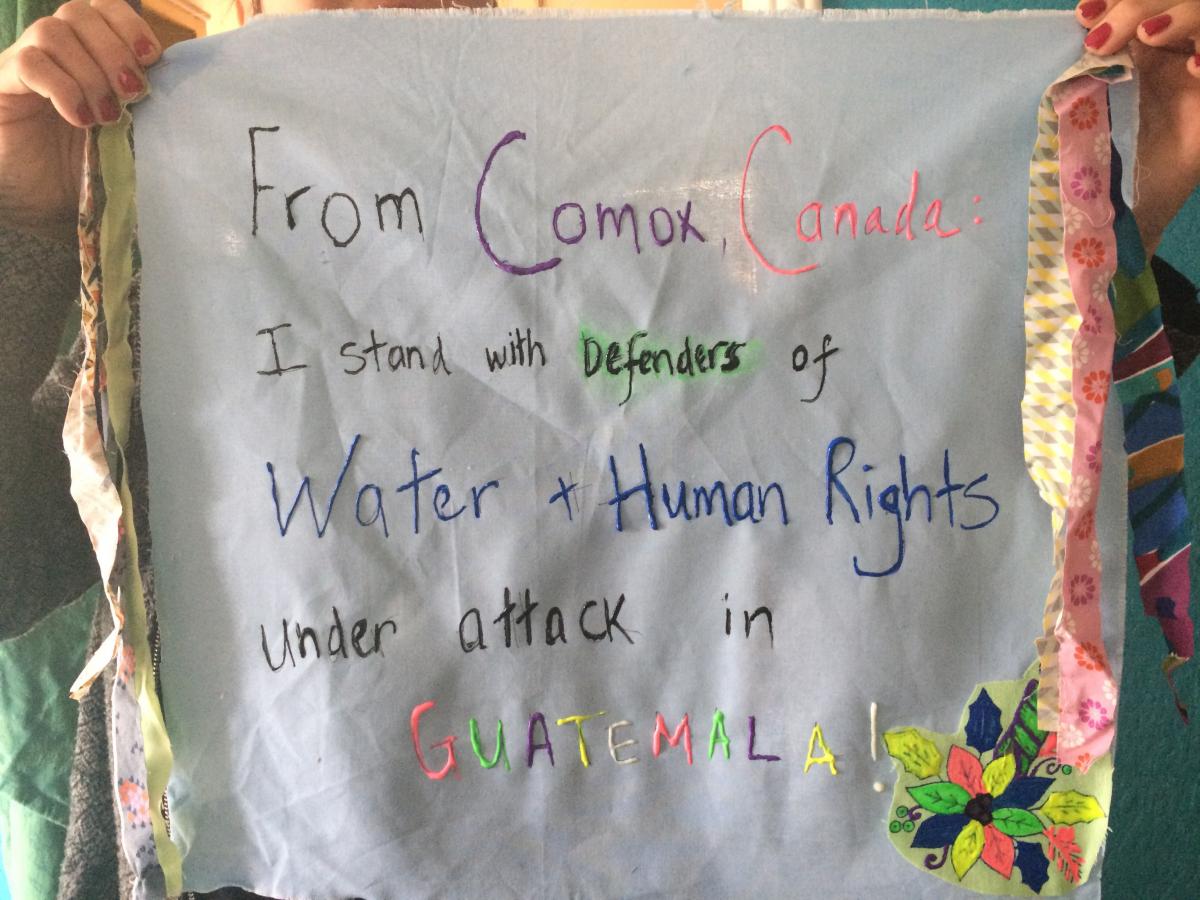 From Comox, Canada:
I stand with Defenders of
Water + Human Rights
under attack in
GUATEMALA!